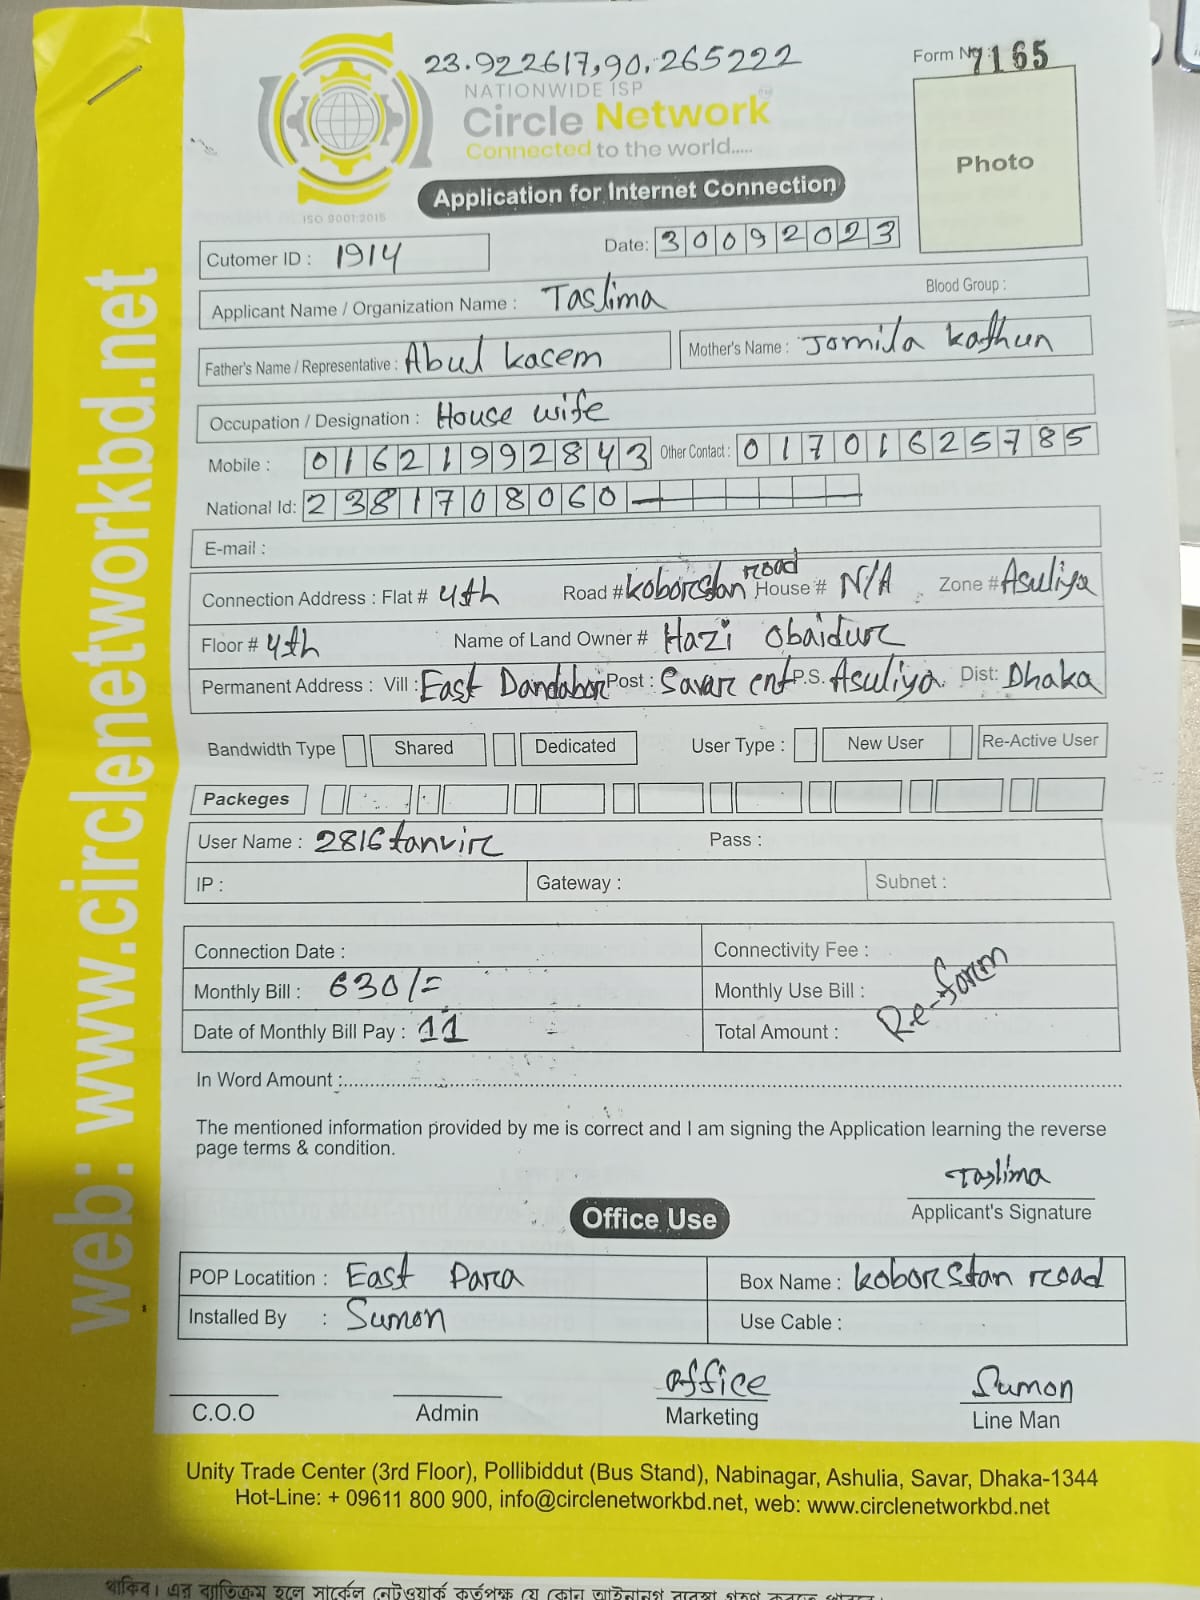 23.922617,90.265222
Form No 7165
NATIONWIDE ISP
Circle Network
Connected to the world.....
Photo
Application for Internet Connection
ISO 9001:2015
Cutomer ID : 1914
Date: 30092023
Applicant Name / Organization Name : Taslima Blood Group :
Father's Name / Representative : Abul kasem Mother's Name : Jomila kathun
Occupation / Designation : House wife
Mobile : 01621992843 Other Contact : 01701625785
National Id: 2381708060
E-mail :
Connection Address : Flat # 4th Road # koborstan road House # N/A Zone # Asuliya
Floor # 4th Name of Land Owner # Hazi Obaidur
Permanent Address : Vill : East Dandabor Post : Savar cnt P.S. Asuliya Dist: Dhaka
Bandwidth Type Shared Dedicated User Type : New User Re-Active User
Packeges
User Name : 2816tanvir Pass :
IP : Gateway : Subnet :
Connection Date : Connectivity Fee :
Monthly Bill : 630/= Monthly Use Bill :
Re-form
Date of Monthly Bill Pay : 11 Total Amount :
In Word Amount :
The mentioned information provided by me is correct and I am signing the Application learning the reverse
page terms & condition.
Taslima
Applicant's Signature
Office Use
POP Locatition : East Para Box Name : koborstan road
Installed By : Sumon Use Cable :
office Sumon
C.O.O Admin Marketing Line Man
Unity Trade Center (3rd Floor), Pollibiddut (Bus Stand), Nabinagar, Ashulia, Savar, Dhaka-1344
Hot-Line: + 09611 800 900, info@circlenetworkbd.net, web: www.circlenetworkbd.net
web: www.circlenetworkbd.net
থাকিব। এর ব্যতিক্রম হলে সার্কেল নেটওয়ার্ক কর্তৃপক্ষ যে কোন